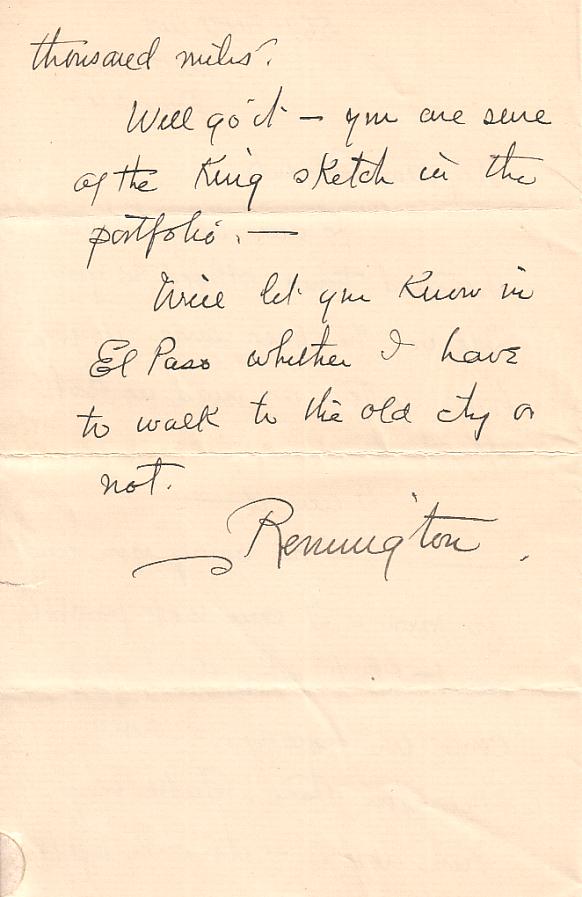 thousand miles.
Will go it — you are sure
of the King sketch in the
portfolio. —
Will let you know in
El Paso whether I have
to walk to the old city or
not.
Remington